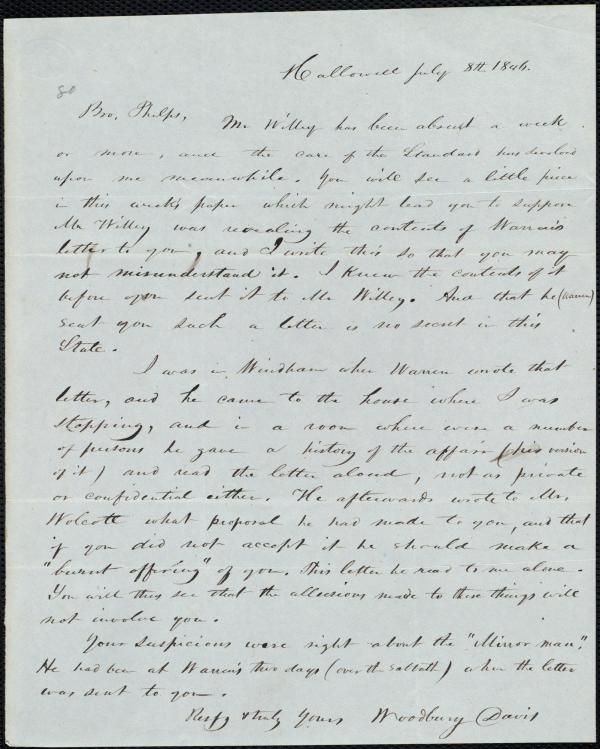 Hallowell July 8th 1846.
80
Bro. Phelps,
Mr Willey has been absent a week
or more, and the care of the Standard has devolved
upon me meanwhile. You will see a little piece
in this week's paper which might lead you to suppose
Mr Willey was revealing the contents of Warren's
letter to you, and I write this so that you may
not misunderstand it. I knew the contents of it
before you sent it to Mr Willey. And that he (Warren)
sent you such a letter is no secret in this
State.
I was in Windham when Warren wrote that
letter, and he came to the house where I was
stopping, and in a room where were a number
of persons he gave a history of the affair (his version
of it) and read the letter aloud, not as private
or confidential either. He afterwards wrote to Mr.
Wolcott what proposal he had made to you, and that
if you did not accept it he should make a
"burnt offering" of you. This letter he read to me alone.
You will thus see that the allusions made to these things will
not involve you.
Your suspicions were right about the "Mirror man".
He had been at Warren's two days (over the Sabbath) when the letter
was sent to you.
Respy & truly Yours Woodbury Davis